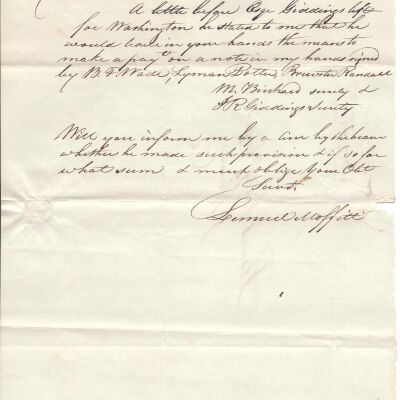 A little before Esqr Giddings left
for Washington he stated to me that he
would leave in your hands the means to
make a payt on a note in my hands signed
by B. F. Wade, Lyman Potter, Brewster Randall
M. Birchard surety &
J R Giddings Surety
Will you inform me by a line by the bearer
whether he made such provision & if so for
what sum & much oblige your Obt
Servt.
Lemuel Moffitt